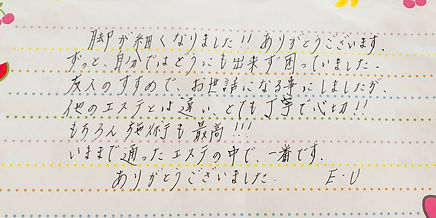 脚が細くなりました!! ありがとうございます。
ずっと、自分ではどうにも出来ず困っていました。
友人のすすめで、お世話になる事にしましたが、
他のエステとは違い、とても丁寧で心切!!
もちろん施術も最高!!!
いままで通ったエステの中で、一番です。
ありがとうございました。 E・U